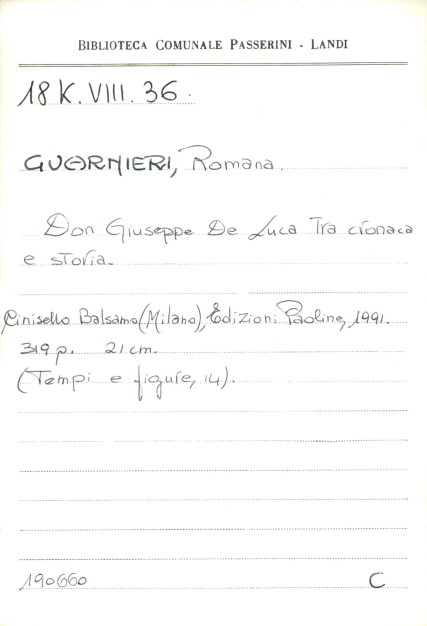 BIBLIOTECA COMUNALE PASSERINI - LANDI
18 K. VIII. 36.
GUARNIERI, Romana.
Don Giuseppe De Luca tra cronaca
e storia.
Cinisello Balsamo (Milano), Edizioni Paoline, 1991.
319 p. 21 cm.
(Tempi e figure, 14).
190660 C